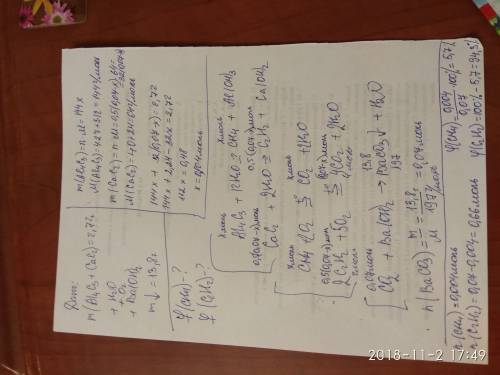 Дано:
m(Al₄C₃ + CaC₂) = 2,72
+ H₂O
+ O₂
+ Ba(OH)₂
m↓ = 13,8 г
φ(CH₄) - ?
φ(C₂H₂) - ?
m(Al₄C₃) = n·M = 144x
M(Al₄C₃) = 4·27+3·12 = 144 г/моль
M(CaC₂) = 40+24 = 64 г/моль
144x + 32(0,07-x) = 2,72
144x + 2,24 - 32x = 2,72
112x = 0,48
x = 0,004 моль
x моль
Al₄C₃ + 12H₂O = CH₄ + Al(OH)₃
CaC₂ + 2H₂O = C₂H₂ + Ca(OH)₂
x моль x моль
CH₄ + O₂ = CO₂ + 2H₂O
2C₂H₂ + 5O₂ = 4CO₂ + 2H₂O
0,07 моль 13,8
CO₂ + Ba(OH)₂ → BaCO₃↓ + H₂O
197
n(BaCO₃) = m/M = 13,8 г / 197 г/моль = 0,07 моль
n(CH₄) = 0,004 моль
n(C₂H₂) = 0,07-0,004 = 0,66 моль
φ(CH₄) = 0,004/0,07 · 100% = 5,7%
φ(C₂H₂) = 100% - 5,7 = 94,3%
2018-11-2 17:49